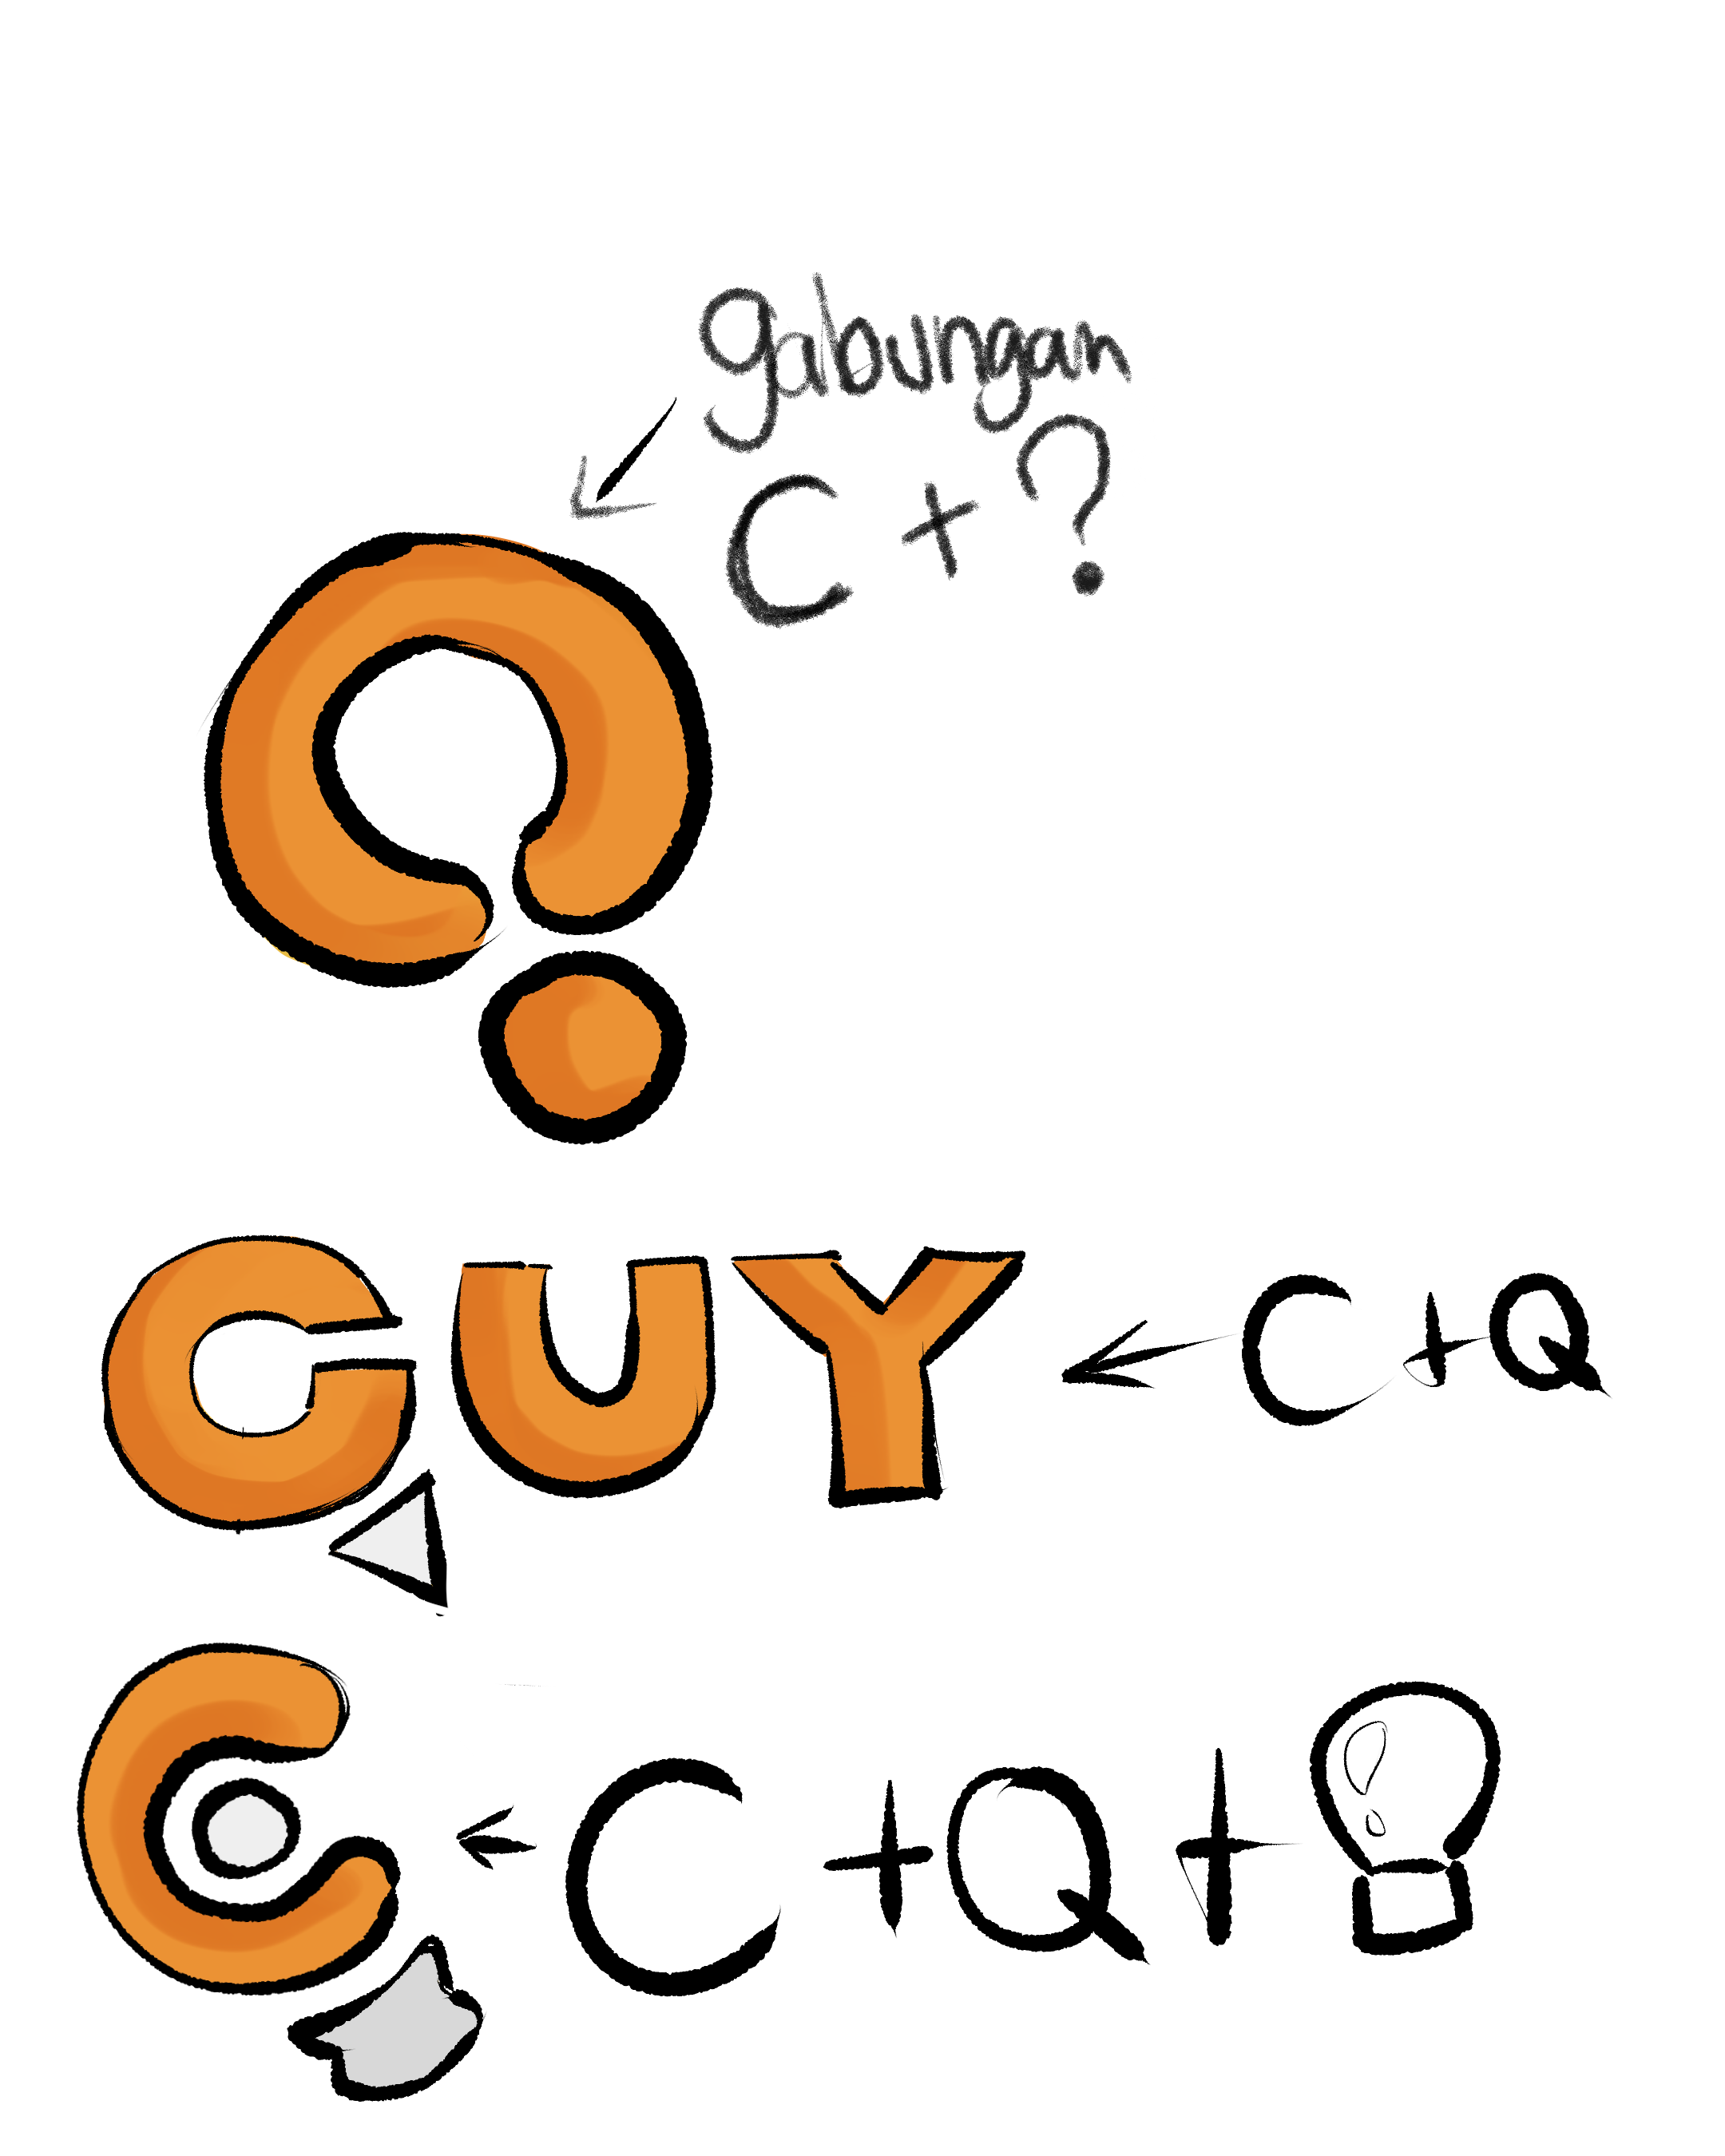 gabungan
C + ?
CUY
C + Q
C + Q +